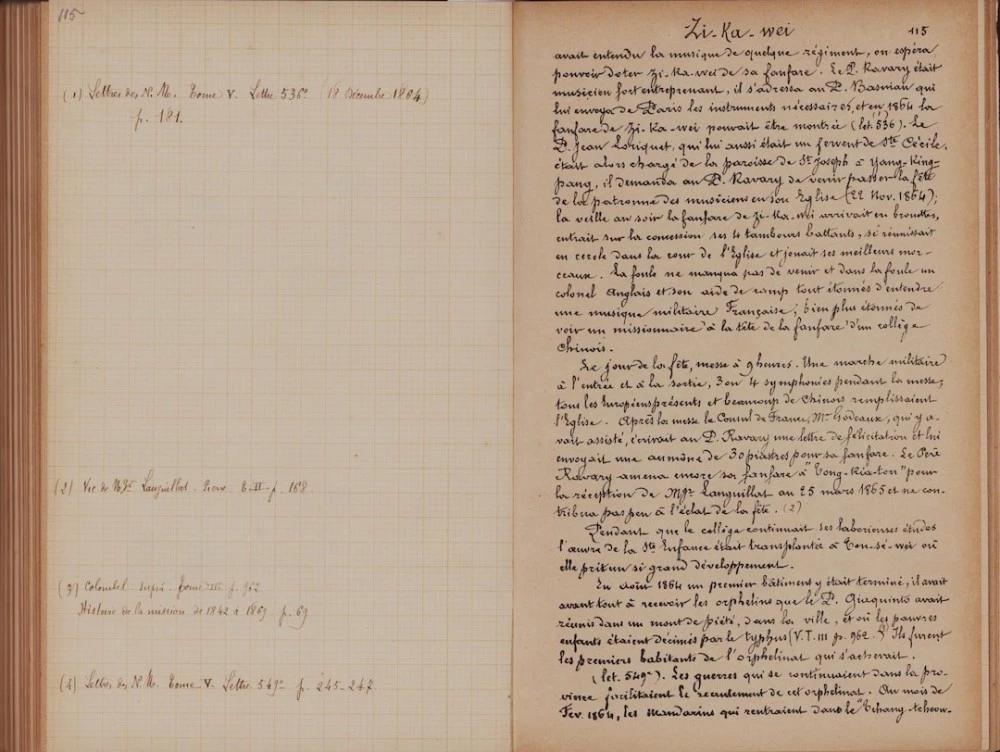 115
(1) Lettres des N. M. Tome V. Lettre 536e (18 Décembre 1864)
p. 181.
(2) Vie de Mgr Languillat. Tome II - p. 168
(3) Colombel - supra - Tome III p. 962
Histoire de la mission de 1842 à 1869 p. 69
(4) Lettres des N. M. Tome V. Lettre 549e p. 245-247
Zi-Ka-wei 115
avait entendu la musique de quelque régiment, on espéra
pouvoir doter Zi-Ka-wei de sa fanfare. Le P. Ravary était
musicien fort entreprenant, il s'adressa au P. Basuiau qui
lui envoya de Paris les instruments nécessaires, et en 1864 la
fanfare de Zi-Ka-wei pouvait être montrée (let. 536). (1) Le
P. Jean Loriquet, qui lui aussi était un fervent de Ste Cécile,
était alors chargé de la paroisse de St Joseph à Yang-King-
pang, il demanda au P. Ravary de venir passer la fête
de la patronne des musiciens en son Eglise (22 Nov. 1864);
la veille au soir la fanfare de Zi-Ka-wei arrivait en brouettes,
entrait sur la concession ses 4 tambours battants, se réunissait
en cercle dans la cour de l'Eglise et jouait ses meilleurs mor-
ceaux. La foule ne manqua pas de venir et dans la foule un
colonel Anglais et son aide de camp tout étonnés d'entendre
une musique militaire Française, bien plus étonnés de
voir un missionnaire à la tête de la fanfare d'un collège
Chinois.
Le jour de la fête, messe à 9 heures. Une marche militaire
à l'entrée et à la sortie, 3 ou 4 symphonies pendant la messe,
tous les Européens présents et beaucoup de Chinois remplissaient
l'Eglise. Après la messe le Consul de France, Mr Godeaux, qui y a-
vait assisté, écrivait au P. Ravary une lettre de félicitation et lui
envoyait une aumône de 30 piastres pour sa fanfare. Le Père
Ravary amena encore sa fanfare à "Tong-Kia-tou" pour
la réception de Mgr Languillat au 25 mars 1865 et ne con-
tribua pas peu à l'éclat de la fête. (2)
Pendant que le collège continuait ses laborieuses études
l'œuvre de la Ste Enfance était transplantée à Tou-sè-wei où
elle prit un si grand développement.
En Août 1864 un premier bâtiment y était terminé, il avait
avant tout à recevoir les orphelins que le P. Giaquinto avait
réunis dans un mont de piété, dans la ville, et où les pauvres
enfants étaient décimés par le typhus (V. T. III p. 962. (3) Ils furent
les premiers habitants de l'orphelinat qui s'achevait.
(let. 549e). Les guerres qui se continuaient dans la pro-
vince facilitaient le recrutement de cet orphelinat. Au mois de
Fév. 1864, les mandarins qui rentraient dans le "Tchang-tcheou-